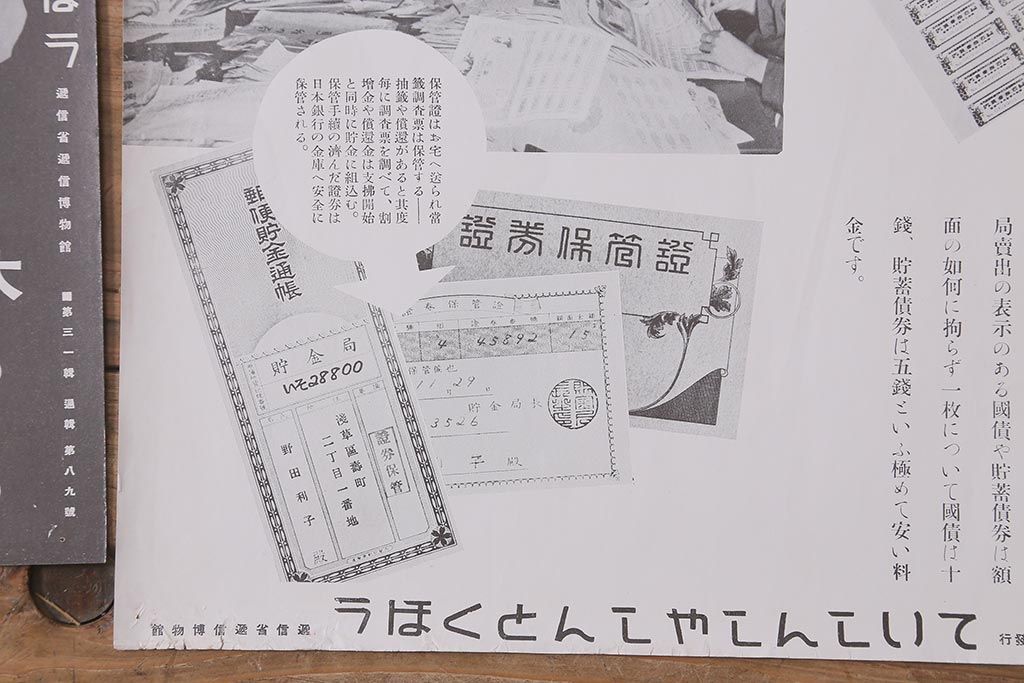 局賣出の表示のある國債や貯蓄債券は額
面の如何に拘らず一枚について國債は十
錢、貯蓄債券は五錢といふ極めて安い料
金です。
保管證はお宅へ送られ當
籤調査票は保管する——
抽籤や償還があると其度
每に調査票を調べて、割
增金や償還金は支拂開始
と同時に貯金に組込む。
保管手續の濟んだ證券は
日本銀行の金庫へ安全に
保管される。
證券保管證
券保管證
4
45892
15
保管候也
11月29日
貯金局長
3526
子殿
郵便貯金通帳
貯金局
いそ28800
證券保管
淺草區壽町
二丁目一番地
野田利子
殿
ていこんこやこんとくほう
遞信省遞信博物館
發行
ほう
遞信省遞信博物館
第三一輯
遞輯第八九號